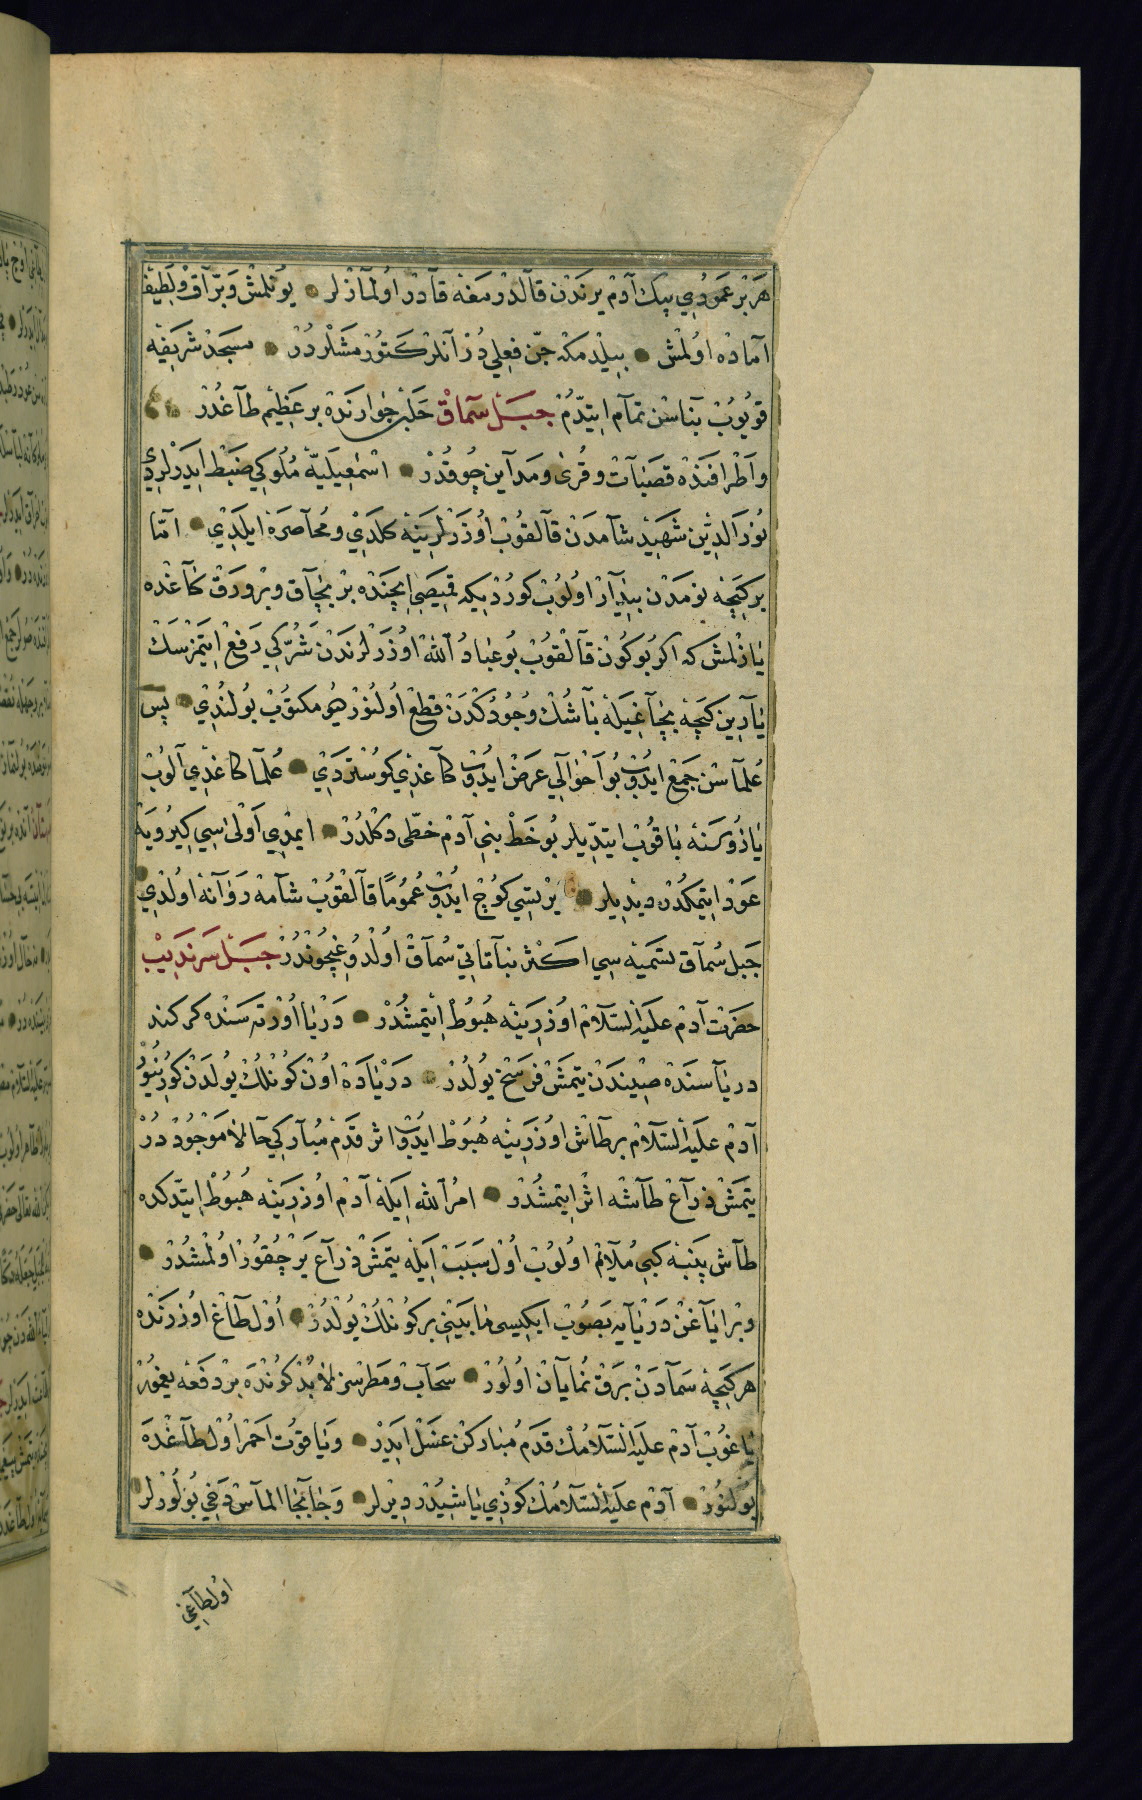 هر بر عمودي بيك آدم يرندن قالدرمغه قادر اولمازلر يونلمش و براق و لطيف
آماده اولمش بيلدم كه جن فعلي در آنلر كتورمشلردر مسجد شريفه
قويوب بناسن تمام ايتدم جبل سماق حلب جوارنده بر عظيم طاغدر
و اطرافنده قصبات و قرى و مداين چوقدر اسمعيليه ملوكي ضبط ايدرلردي
نور الدين شهيد شامدن قالقوب اوزرلرينه كلدي و محاصره ايلدي اما
بر كيجه نومدن بيدار اولوب كوردي كه قميصي ايچنده بر بچاق و بر ورق كاغده
يازلمش كه اكر بو كون قالقوب بو عباد الله اوزرلرندن شركي رفع ايتمزسك
يارين كيجه بچاغيله باشك وجودكدن قطع اولنور ديو مكتوب بولندي پس
علماسن جمع ايدوب بو احوالي عرض ايدوب كاغدي كوستردي علما كاغدي آلوب
يازوسنه باقوب ايتديلر بو خط بني آدم خطى دكلدر ايمدي اولىسي كيرويه
عود ايتمكدر ديديلر يرتسي كوچ ايدوب عموما قالقوب شامه روانه اولدي
جبل سماق تسميهسي اكثر نباتاتي سماق اولدوغيچوندر جبل سرنديب
حضرت آدم عليه السلام اوزرينه هبوط ايتمشدر دريا اورتهسنده كركند
درياسنده صيندن يتمش فرسخ يولدر درياده اون كونلك يولدن كورنيور
آدم عليه السلام بر طاش اوزرينه هبوط ايدوب اثر قدم مباركي حالا موجوددر
يتمش ذراع طاشه اثر ايتمشدر امر الله ايله آدم اوزرينه هبوط ايتدكده
طاش پنبه كبي ملايم اولوب اول سبب ايله يتمش ذراع ير چقور اولمشدر
و بر اياغن دريايه بصوب ايكيسى مابيني بر كونلك يولدر اول طاغ اوزرنده
هر كيجه سمادن برق نمايان اولور سحاب و مطرسز لابد كونده بر دفعه يغمور
ياغوب آدم عليه السلامك قدم مباركن غسل ايدر و ياقوت احمر اول طاغده
بولنور آدم عليه السلامك كوزي ياشيدر ديرلر و جابجا الماس دخي بولورلر
اول طاغي